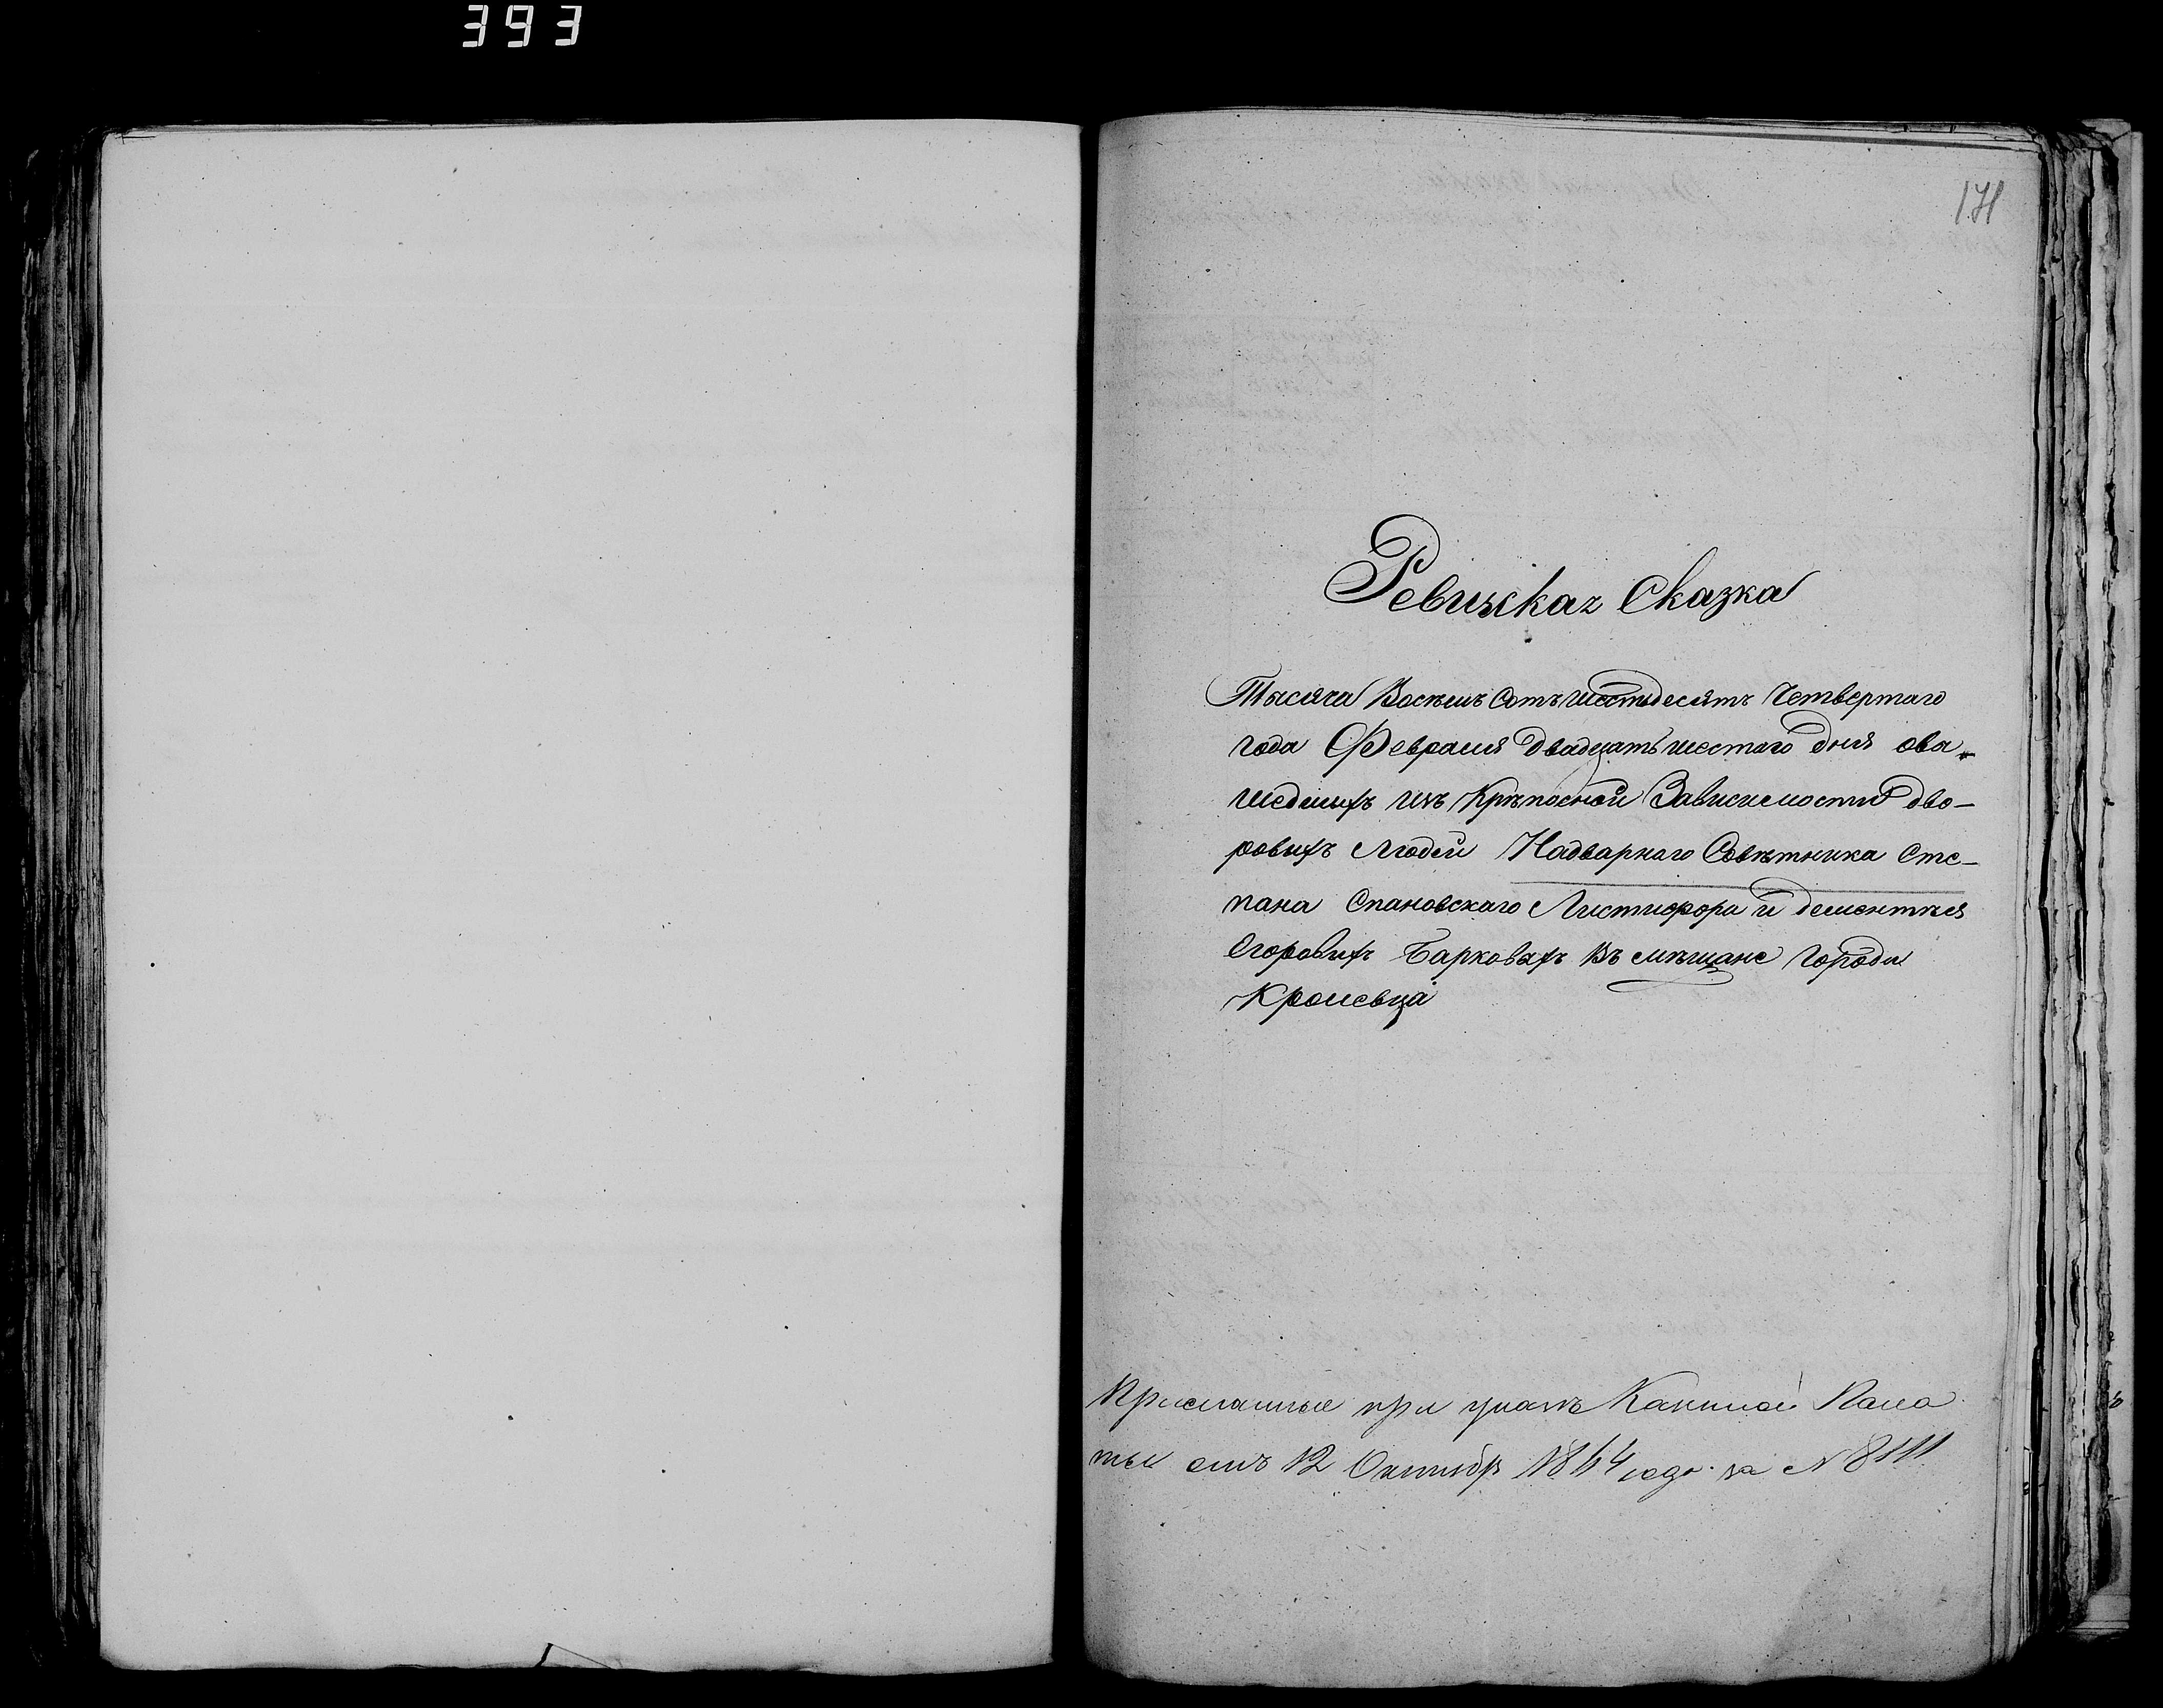 393
171
Ревизская Сказка
Тысяча Восемь Сотъ шестьдесятъ Четвертаго
года Февраля двадцать шестаго дня ова-
шедшихъ изъ Крѣпосной Зависимости дво-
ровыхъ Людей Надварнаго Совѣтника Сте-
пана Спановскаго Листифора и дементия
Егоровыхъ Барковахъ Въ мѣщане города
Кролевца
Присланные при указѣ Казенной Пала
ты отъ 12 Октября 1864 года за N 8111